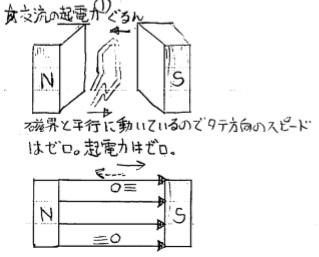 ☆交流の起電力 ① ぐるん
N S
磁界と平行に動いているのでタテ方向のスピード
はゼロ。起電力はゼロ。
N S